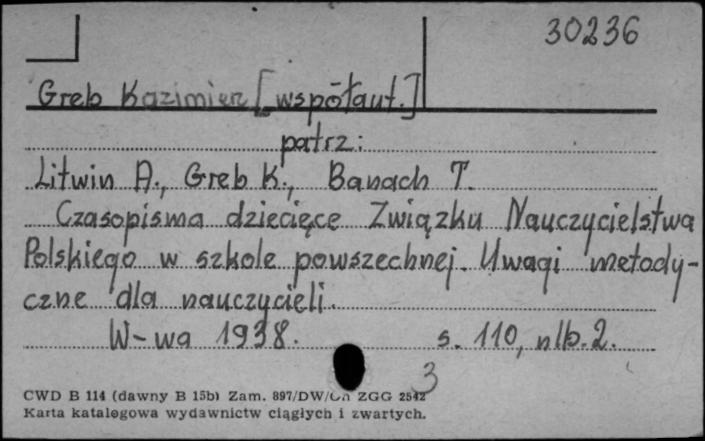 30236
Greb Kazimierz [współaut.]
patrz:
Litwin A., Greb K., Banach T.
Czasopisma dziecięce Związku Nauczycielstwa
Polskiego w szkole powszechnej. Uwagi metody-
czne dla nauczycieli.
W-wa 1938. s. 110, nlb. 2.
3
CWD B 114 (dawny B 15b) Zam. 897/DW/ ZGG 2542
Karta katalogowa wydawnictw ciągłych i zwartych.